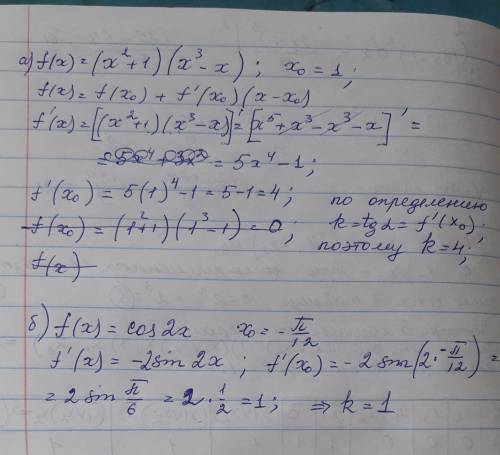 а) f(x) = (x²+1)(x³-x); x₀ = 1;
f(x) = f(x₀) + f'(x₀)(x-x₀)
f'(x) = [(x²+1)(x³-x)]' = [x⁵+x³-x³-x]' =
= 5x⁴-1;
f'(x₀) = 5(1)⁴-1 = 5-1 = 4; по определению
f(x₀) = (1²+1)(1³-1) = 0; k = tg α = f'(x₀);
поэтому k = 4;
f(x)
б) f(x) = cos 2x x₀ = -π/12
f'(x) = -2sin 2x; f'(x₀) = -2 sin(2·-π/12) =
= 2 sin π/6 = 2·1/2 = 1; ⇒ k = 1